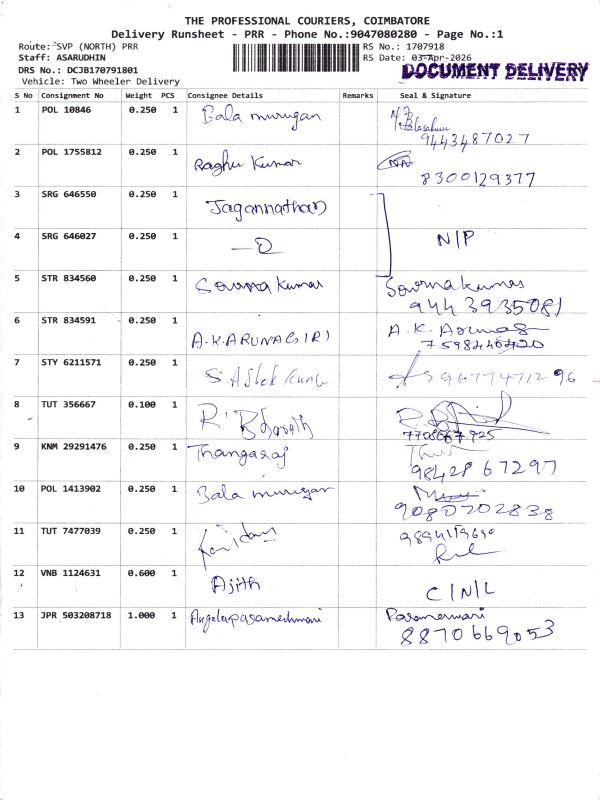 THE PROFESSIONAL COURIERS, COIMBATORE
Delivery Runsheet - PRR - Phone No.:9047080280 - Page No.:1
Route: SVP (NORTH) PRR RS No.: 1707918
Staff: ASARUDHIN RS Date: 03-Apr-2026
DRS No.: DCJB170791801 DOCUMENT DELIVERY
Vehicle: Two Wheeler Delivery
S No Consignment No Weight PCS Consignee Details Remarks Seal & Signature
1 POL 10846 0.250 1 Bala murugan
9443487027
2 POL 1755812 0.250 1 Raghu Kumar
8300129377
3 SRG 646550 0.250 1 Jagannathan
4 SRG 646027 0.250 1 N/P
5 STR 834560 0.250 1 Sowrna Kumar Sowrna kumar
944 3935081
6 STR 834591 0.250 1 A.K.ARUNAGIRI A.K.
7598440420
7 STY 6211571 0.250 1 S. Ashok kumar 9677471296
8 TUT 356667 0.100 1 R. Bharath
7708667925
9 KNM 29291476 0.250 1 Thangaraj
98428 67297
10 POL 1413902 0.250 1 Bala murugan
9080702838
11 TUT 7477039 0.250 1
12 VNB 1124631 0.600 1 Ajith C/N/L
13 JPR 503208718 1.000 1 Angalaparameshwari Parameswari
8870669053